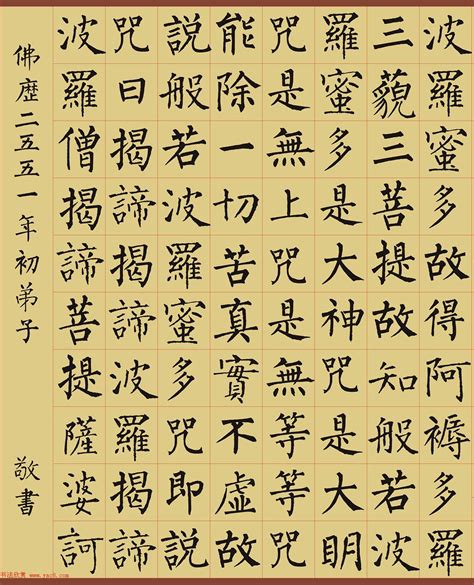 波羅蜜多故得阿褥多羅
三藐三菩提故知般若波
羅蜜多是大神咒是大眀
咒是無上咒是無等等咒
能除一切苦真實不虛故
說般若波羅蜜多咒即說
咒曰揭諦揭諦波羅揭諦
波羅僧揭諦菩提薩婆訶
佛歷二五五一年初弟子 敬書
书法欣赏 www.yac8.com